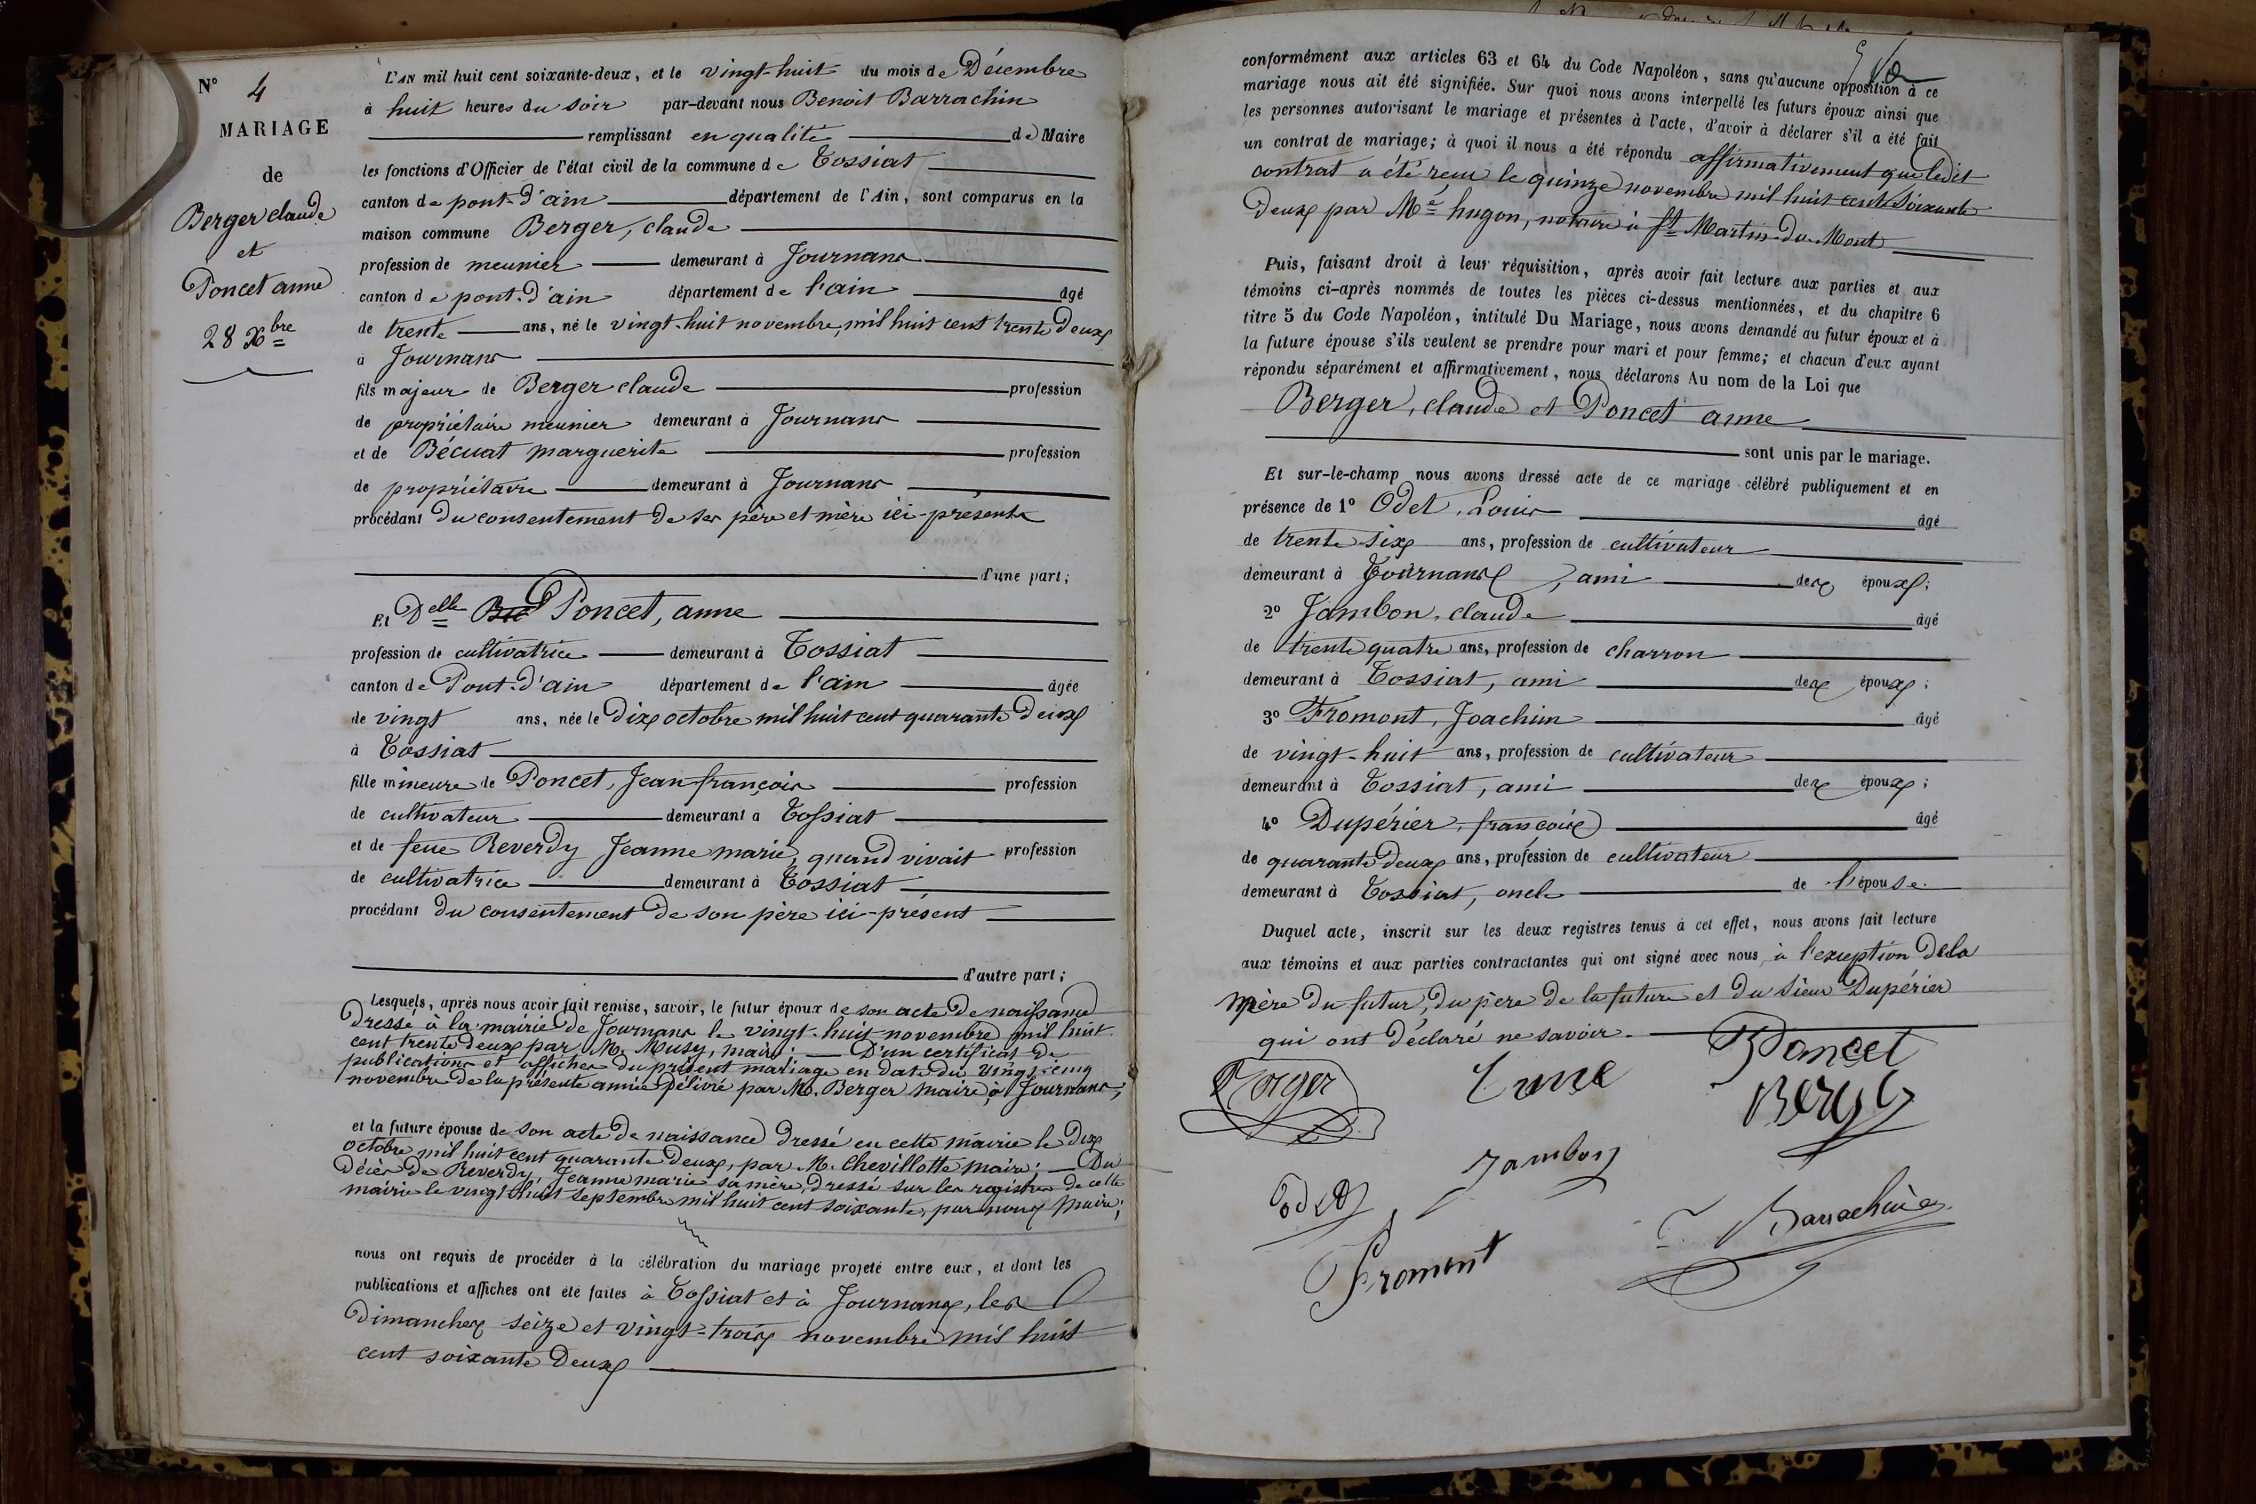 N° 4
MARIAGE
de
Berger claude
et
Poncet anne
28 Xbre
L'AN mil huit cent soixante-deux, et le vingt-huit du mois de Décembre
à huit heures du soir par-devant nous Benoit Barrachin
remplissant en qualité de Maire
les fonctions d'Officier de l'état civil de la commune de Tossiat
canton de pont-d'ain département de l'Ain, sont comparus en la
maison commune Berger, claude
profession de meunier demeurant à Journans
canton de pont-d'ain département de l'ain âgé
de trente ans, né le vingt-huit novembre, mil huit cent trente Deux
à Journans
fils majeur de Berger claude profession
de propriétaire meunier demeurant à Journans
et de Bécuat marguerite profession
de propriétaire demeurant à Journans
procédant Du consentement de ses père et mère ici-présents
d'une part;
Et Delle Poncet, anne
profession de cultivatrice demeurant à Tossiat
canton de Pont-d'ain département de l'ain âgée
de vingt ans, née le Dix octobre mil huit cent quarante Deux
à Tossiat
fille mineure de Poncet, Jean françois profession
de cultivateur demeurant a Tossiat
et de feue Reverdy Jeanne marie, quand vivait profession
de cultivatrice demeurant à Tossiat
procédant du consentement de son père ici-présent
d'autre part;
Lesquels, après nous avoir fait remise, savoir, le futur époux de son acte de naissance
Dressé à la mairie de Journans le vingt-huit novembre mil huit
cent trente deux par M. Musy, maire; D'un certificat de
publications et affiches du présent mariage en date du vingt cinq
novembre de la présente année délivré par M. Berger maire, à Journans;
et la future épouse de son acte de naissance dressé en cette mairie le Dix
octobre mil huit cent quarante Deux, par M. Chevillotte maire; Du
décès de Reverdy, Jeanne marie sa mère, dressé sur les registres de cette
mairie le vingt huit septembre mil huit cent soixante, par nous Maire;
nous ont requis de procéder à la célébration du mariage projeté entre eux, et dont les
publications et affiches ont été faites à Tossiat et à Journans, les
Dimanches seize et vingt-trois novembre mil huit
cent soixante Deux
conformément aux articles 63 et 64 du Code Napoléon, sans qu'aucune opposition à ce
mariage nous ait été signifiée. Sur quoi nous avons interpellé les futurs époux ainsi que
les personnes autorisant le mariage et présentes à l'acte, d'avoir à déclarer s'il a été fait
un contrat de mariage; à quoi il nous a été répondu affirmativement que ledit
contrat a été reçu le quinze novembre mil huit cent soixante
Deux par Me hugon, notaire à St Martin-du-Mont
Puis, faisant droit à leur réquisition, après avoir fait lecture aux parties et aux
témoins ci-après nommés de toutes les pièces ci-dessus mentionnées, et du chapitre 6
titre 5 du Code Napoléon, intitulé Du Mariage, nous avons demandé au futur époux et à
la future épouse s'ils veulent se prendre pour mari et pour femme; et chacun d'eux ayant
répondu séparément et affirmativement, nous déclarons Au nom de la Loi que
Berger, claude et Poncet anne
sont unis par le mariage.
Et sur-le-champ nous avons dressé acte de ce mariage célébré publiquement et en
présence de 1° Odet, Louis âgé
de trente six ans, profession de cultivateur
demeurant à Journans, ami des époux;
2° Jambon, claude âgé
de trente quatre ans, profession de charron
demeurant à Tossiat, ami des époux;
3° Fromont, Joachim âgé
de vingt-huit ans, profession de cultivateur
demeurant à Tossiat, ami des époux;
4° Dupérier, françois âgé
de quarante Deux ans, profession de cultivateur
demeurant à Tossiat, oncle de l'épouse
Duquel acte, inscrit sur les deux registres tenus à cet effet, nous avons fait lecture
aux témoins et aux parties contractantes qui ont signé avec nous, à l'exception De la
mère Du futur, du père de la future et du sieur Dupérier
qui ont déclaré ne savoir.
Berger anne Poncet
Berger
Jambon
Odet
Barrachin
Fromont